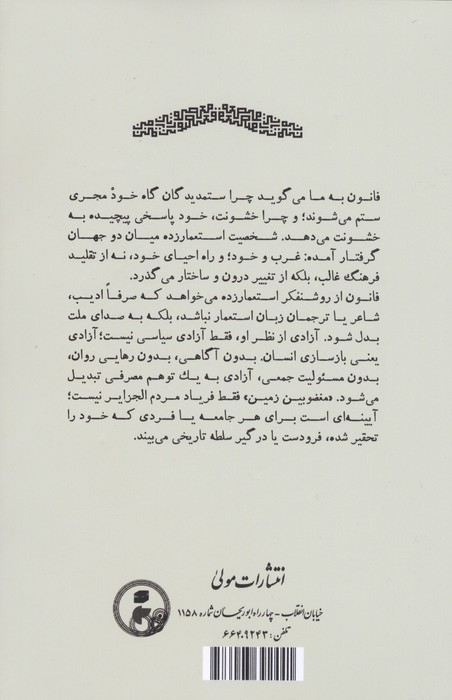 فانون به ما می‌گوید چرا ستمدیدگان گاه خودْ مجری
ستم می‌شوند؛ و چرا خشونت، خود پاسخی پیچیده به
خشونت می‌دهد. شخصیت استعمارزده میان دو جهان
گرفتار آمده: غرب و خود؛ و راه احیای خود، نه از تقلید
فرهنگ غالب، بلکه از تغییر درون و ساختار می‌گذرد.
فانون از روشنفکر استعمارزده می‌خواهد که صرفاً ادیب،
شاعر یا ترجمان زبان استعمار نباشد، بلکه به صدای ملت
بدل شود. آزادی از نظر او، فقط آزادی سیاسی نیست؛ آزادی
یعنی بازسازی انسان. بدون آگاهی، بدون رهایی روان،
بدون مسئولیت جمعی، آزادی به یك توهم مصرفی تبدیل
می‌شود. «مغضوبین زمین» فقط فریاد مردم الجزایر نیست؛
آیینه‌ای است برای هر جامعه یا فردی که خود را
تحقیر شده، فرودست یا درگیر سلطه تاریخی می‌بیند.
انتشارات مولی
خیابان انقلاب - چهارراه ابوریحان شماره ۱۱۵۸
تلفن: ۶۶۴۰۹۲۴۳